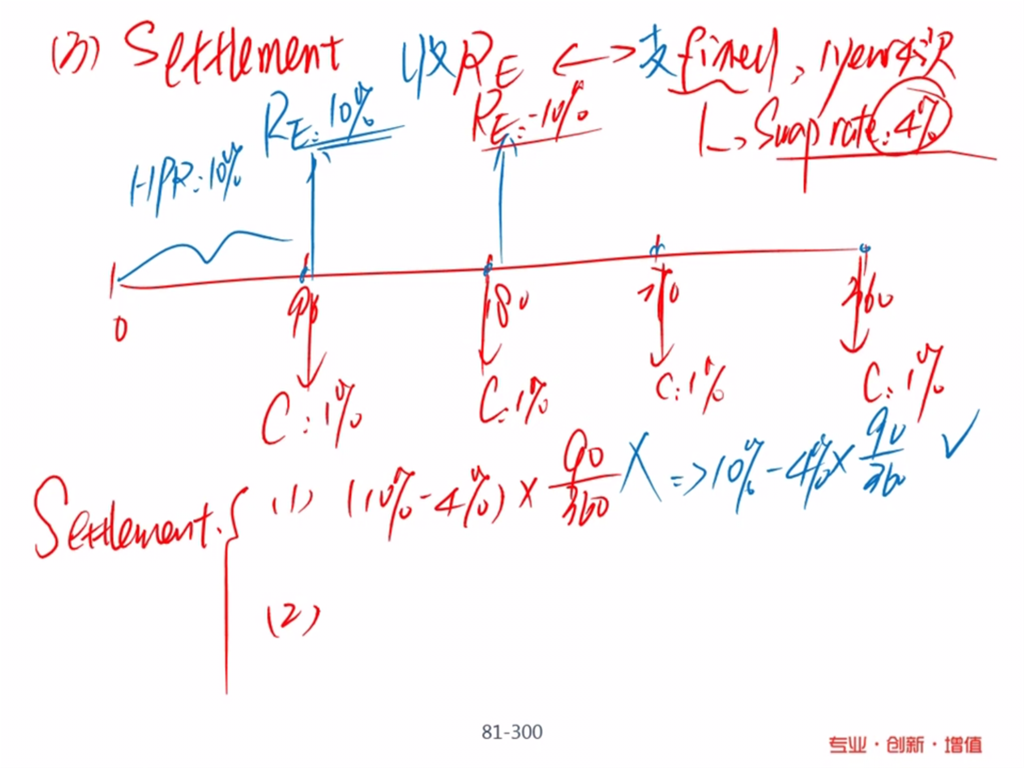 (3) Settlement 收RE <-> 支fixed, 1year4次
RE: 10% RE: -10% L, Swap rate: 4%
HPR: 10%
0 90 180 270 360
C: 1% C: 1% C: 1% C: 1%
Settlement. { (1) (10% - 4%) × 90/360 X => 10% - 4% × 90/360 ✓
(2)
81-300
专业·创新·增值